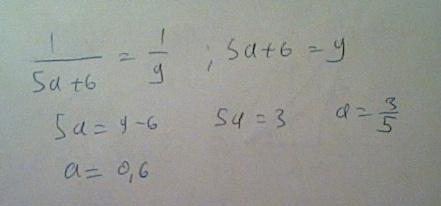 1/(5a+6) = 1/9 ; 5a+6 = 9
5a = 9-6 5a = 3 a = 3/5
a = 0,6